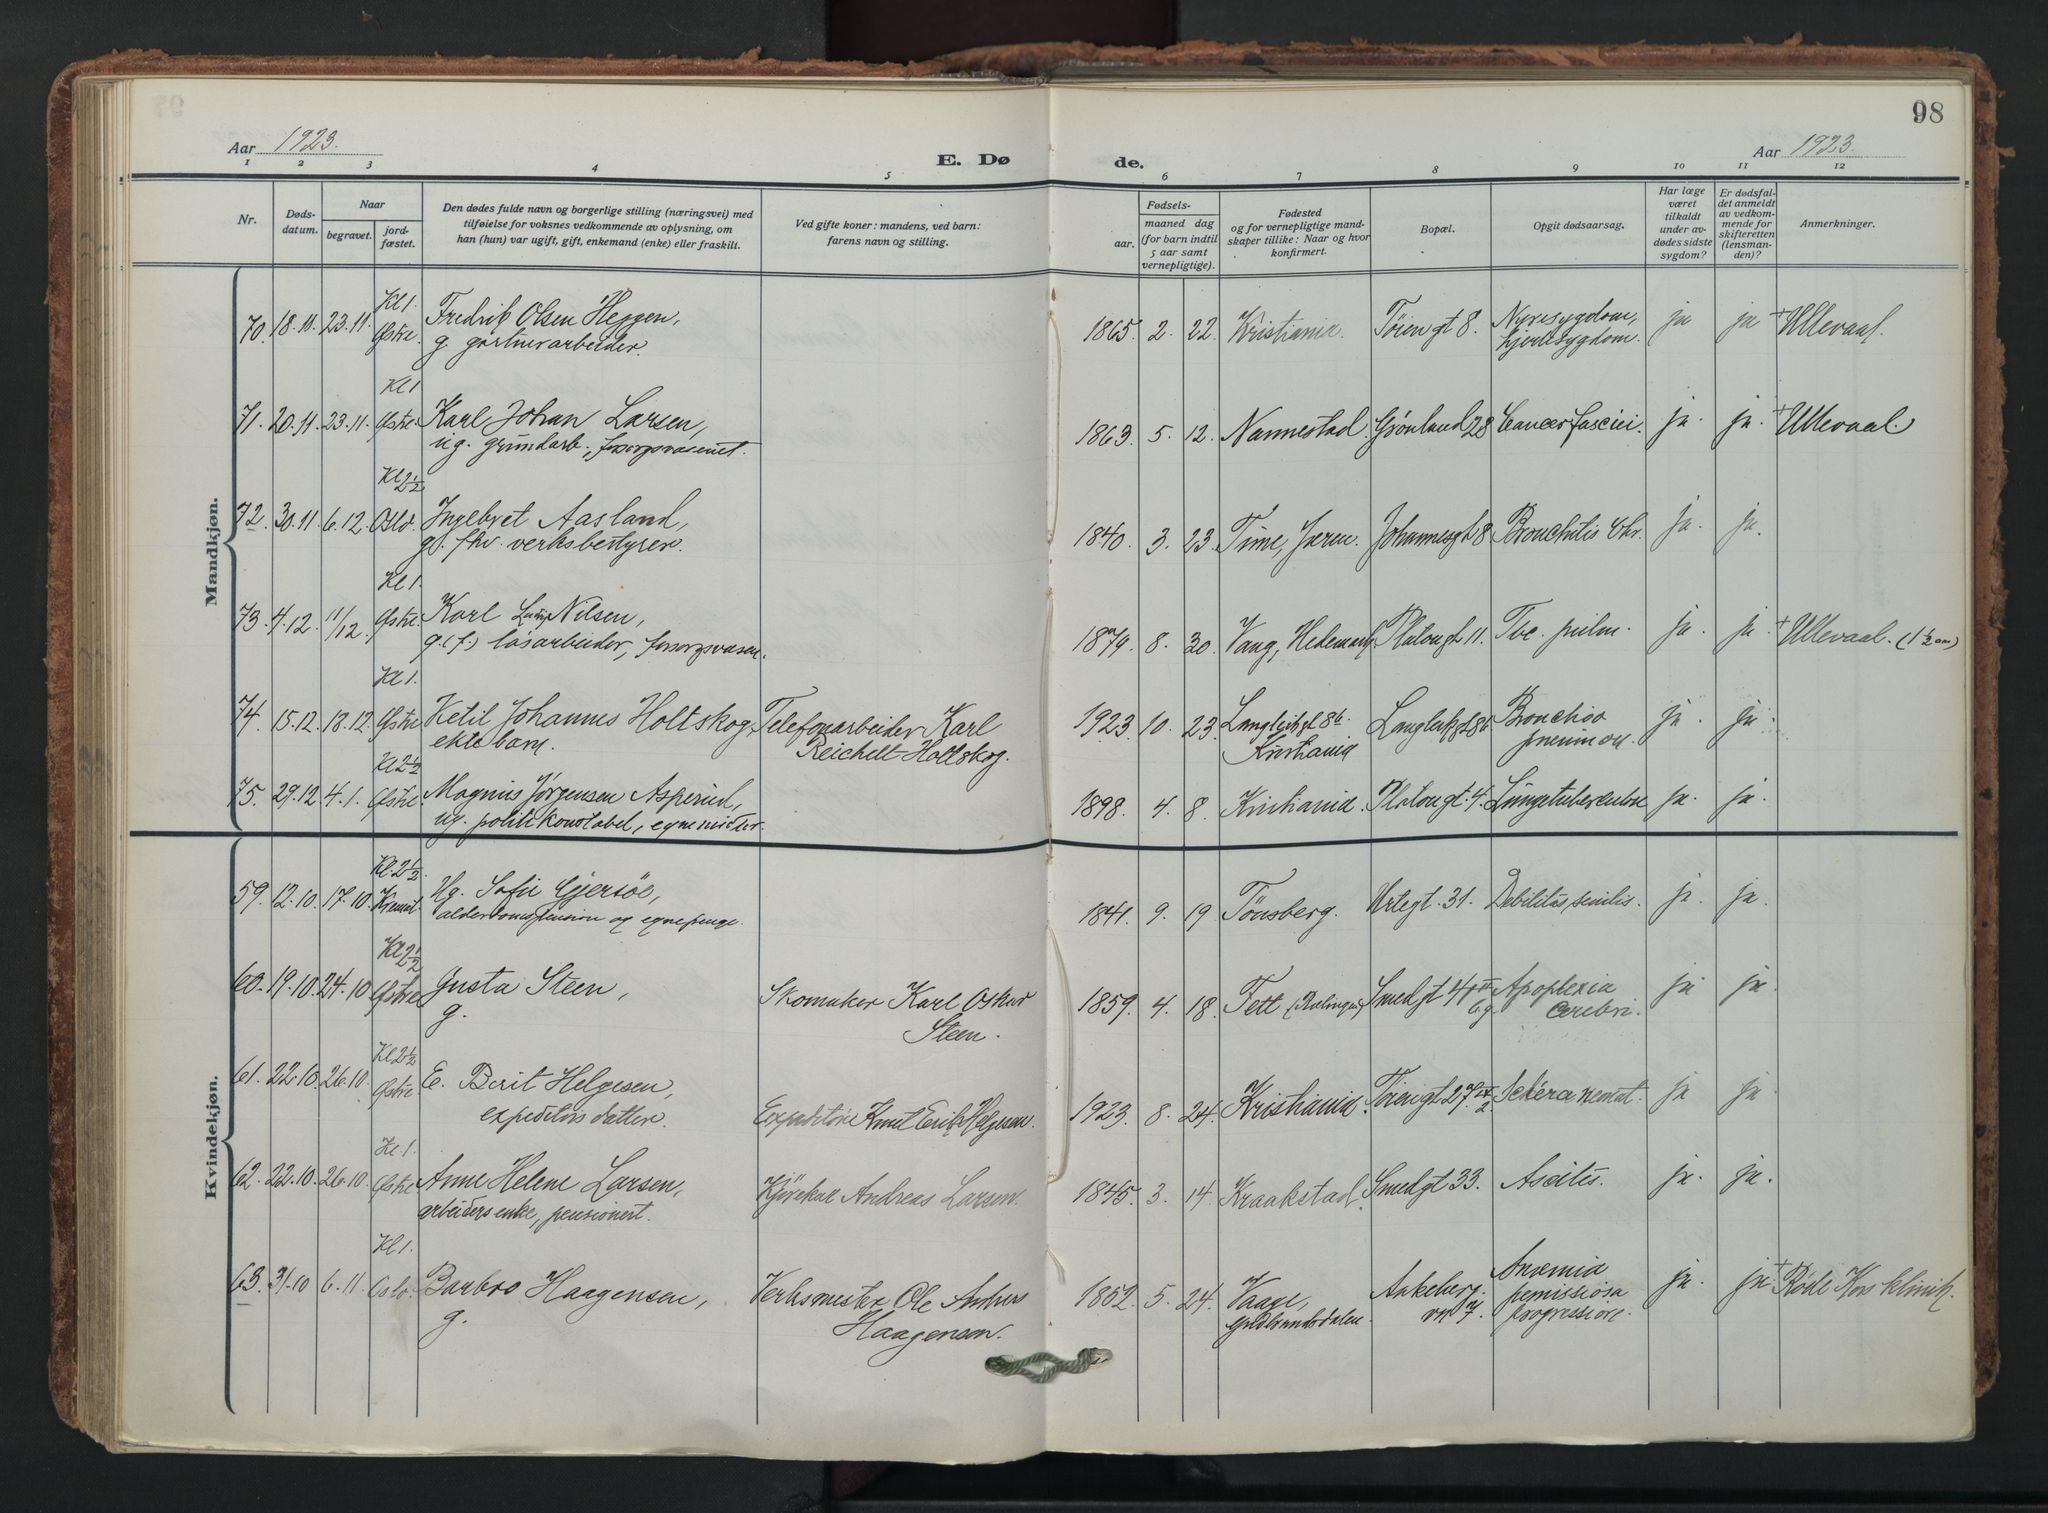 98
Aar 1923.
E. Dø
de.
Aar 1923.
1 2 3 4 5 6 7 8 9 10 11 12
Nr.
Døds-
datum.
Naar
begravet.
jord-
fæstet.
Den dødes fulde navn og borgerlige stilling (næringsvei) med
tilføielse for voksnes vedkommende av oplysning, om
han (hun) var ugift, gift, enkemand (enke) eller fraskilt.
Ved gifte koner: mandens, ved barn:
farens navn og stilling.
Fødsels-
aar.
maaned dag
(for barn indtil
5 aar samt
vernepligtige).
Fødested
og for vernepligtige mand-
skaper tillike: Naar og hvor
konfirmert.
Bopæl.
Opgit dødsaarsag.
Har læge
været
tilkaldt
under av-
dødes sidste
sygdom?
Er dødsfal-
det anmeldt
av vedkom-
mende for
skifteretten
(lensman-
den)?
Anmerkninger.
Mandkjøn.
Kl 1
70. 18.11. 23.11. Østre. Fredrik Olsen Heggen, 1865. 2. 22. Kristiania. Tøiengt 8. Nyresygdom, ja ja + Ullevaal.
g. gartnerarbeider. hjertesygdom.
Kl 1
71. 20.11. 23.11. Østre. Karl Johan Larsen, 1863. 5. 12. Nannestad. Grønland 28 Cancer fasciei. ja. ja. + Ullevaal.
ug. grundarb., forsorgsvæsenet.
Kl 2½
72. 30.11. 6.12. Oslo. Ingebret Aasland, 1840. 3. 23. Time, Jæren. Johannesgt 8 Bronchitis Chr. ja. ja.
g. fhv. verksbestyrer.
Kl 1.
73. 4.12. 11/12 Østre. Karl Nilsen, 1879. 8. 30. Vang, Hedemark Platougt 11. Tbc. pulm. ja. ja. + Ullevaal. (1½ am)
g. (f.) løsarbeider, forsorgsvæsen.
Kl 1.
74. 15.12. 18.12. Østre Ketil Johannes Holtskog, Telefonarbeider Karl 1923. 10. 23. Langleikgt 8b. Langleikgt 8b Broncho ja. ja.
ekte barn. Reichelt Holtskog. Kristiania pneumon.
Kl 2½
75. 29.12 4.1. Østre. Magnus Jørgensen Asperud, 1898. 4. 8. Kristiania. Platougt. 4. Lungetuberculose ja. ja.
ug. politikonstabel, egne midler.
Kvindekjøn.
Kl. 2½
59. 12.10. 17.10. Kremat. Ug. Sofie Gjersøe, 1841. 9. 19 Tønsberg. Urtegt. 31. Debilitas senilis. ja. ja.
alderdomspension og egne penge.
Kl 2½
60. 19.10. 24.10 Østre Gusta Steen, Skomaker Karl Oskar 1859. 4. 18. Smedgt Apoplexia ja ja.
g. Steen. cerebri.
Kl 2½
61. 22.10 26.10. Østre. E. Berit Helgesen, Expeditør Knut Erik Helgesen. 1923. 8. 24. Kristiania. Tøiengt 27 Sclera neonat. ja ja.
expeditørs datter.
Kl 1.
62. 22.10. 26.10. Østre Anne Helene Larsen, Kjørekar Andreas Larsen. 1845. 3. 14. Kraakstad. Smedgt 33. Ascites. ja. ja.
arbeiders enke, pensionert.
Kl 1.
63. 31.10 6.11. Oslo. Barbro Haagensen, Verksmester Ole Anders 1852. 5. 24. Vaage, Aakeberg- Anæmia ja. ja + Røde Kors klinik.
g. Haagensen. Gudbrandsdalen. vn 7. perniciosa
progressive.